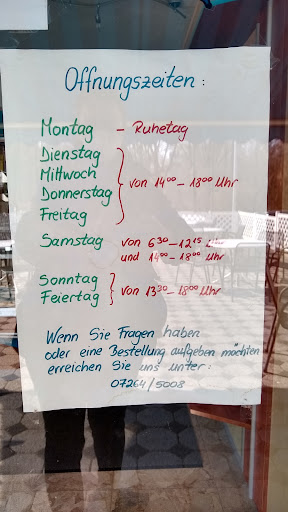 Öffnungszeiten :
Montag – Ruhetag
Dienstag
Mittwoch
Donnerstag
Freitag
von 14⁰⁰ – 18⁰⁰ Uhr
Samstag von 6³⁰ – 12¹⁵ Uhr
und 14⁰⁰ – 18⁰⁰ Uhr
Sonntag
Feiertag
von 13³⁰ – 18⁰⁰ Uhr
Wenn Sie Fragen haben
oder eine Bestellung aufgeben möchten
erreichen Sie uns unter:
07264/5008